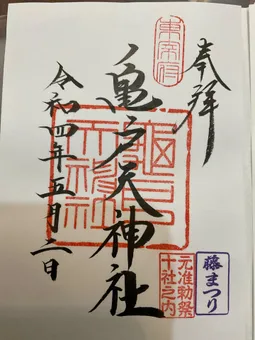 奉拝
東宰府
亀戸天神社
令和四年五月二日
元准勅祭
十社之内
藤まつり